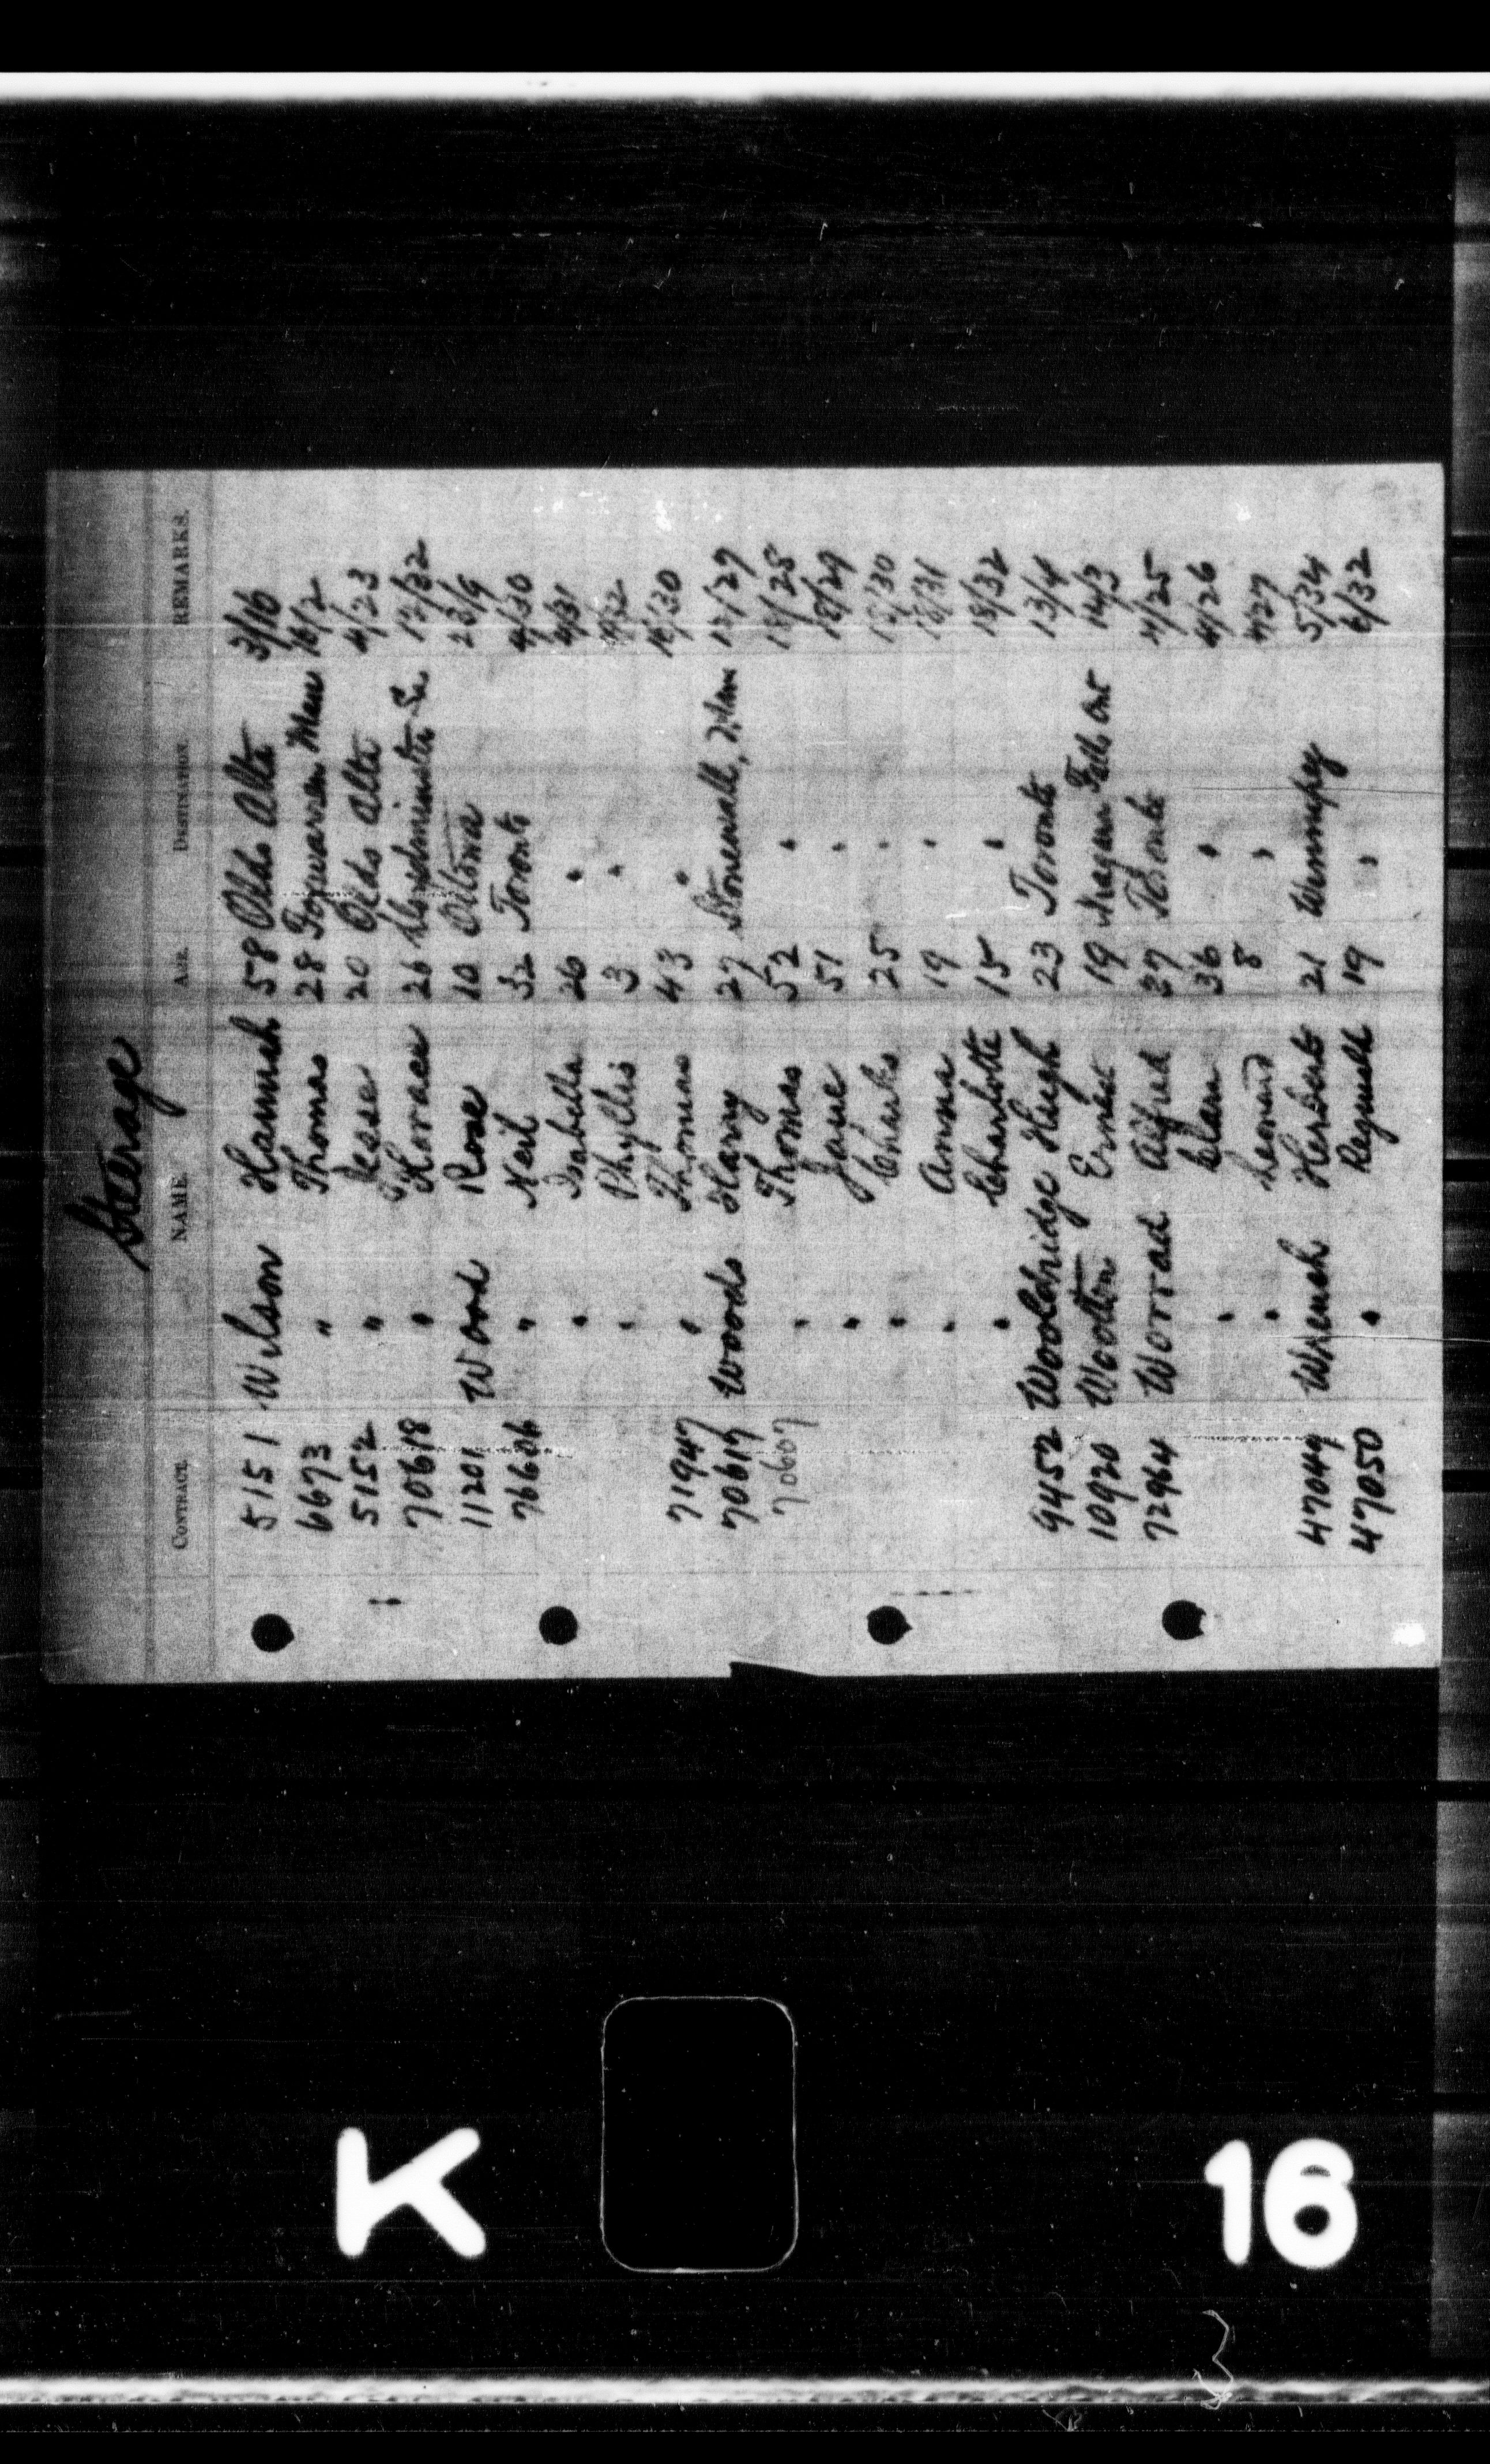 Steerage
CONTRACT. NAME. AGE. DESTINATION. REMARKS.
5151 Wilson Hannah 58 Olds Alta 3/16
6673 " Thomas 28 16/2
5152 " Jesse 20 Olds Alta 4/23
70618 " Horace 26 12/32
11201 Wood Rose 20/9
76606 " Neil 32 Toronto 4/30
" Isabella 26 " 4/31
" Phyllis 3 " 4/32
71947 " Thomas 43 " 16/30
70617 Woods Harry 27 Stonewall, Man 12/29
70607 " Thomas 52 " 18/28
" Jane 51 " 18/29
" Charles 25 " 18/30
" Anna 19 " 18/31
" Charlotte 15 " 18/32
9452 Wooldridge Hugh 23 Toronto 13/4
10920 Wootton Ernest 19 Niagara Falls Ont 14/3
72964 Worrad Alfred 37 Toronto 4/25
" Clara 36 " 4/26
" Leonard 8 " 4/27
47049 Wrench Herbert 21 Winnipeg 5/34
47050 " Reginald 19 " 6/32
K 16